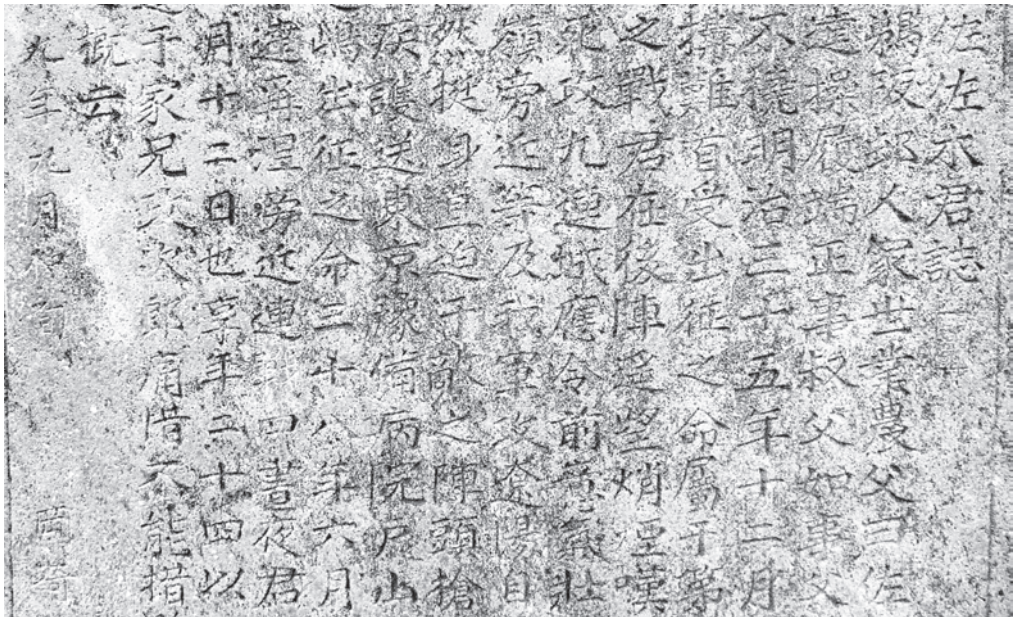 佐佐木君誌
鵜殿邸人家世業農父曰佐
遠操履端正事叔父如事父
不撓明治三十五年十二月
攘難首受出征之命屬于第
之戰君在後陣遥望焇堙嘆
死攻九連城應令前 氣壯
嶺旁近等及我軍攻遼陽自
然挺身直迫于敵之陣頭槍
疾護送東京豫備病院戸山
嶋出征之命三十八年六月
達 旁近連戰四晝夜君
月十二日也享年二十四以
于家兄 次郎痛惜不能措
概云
九年九月 旬